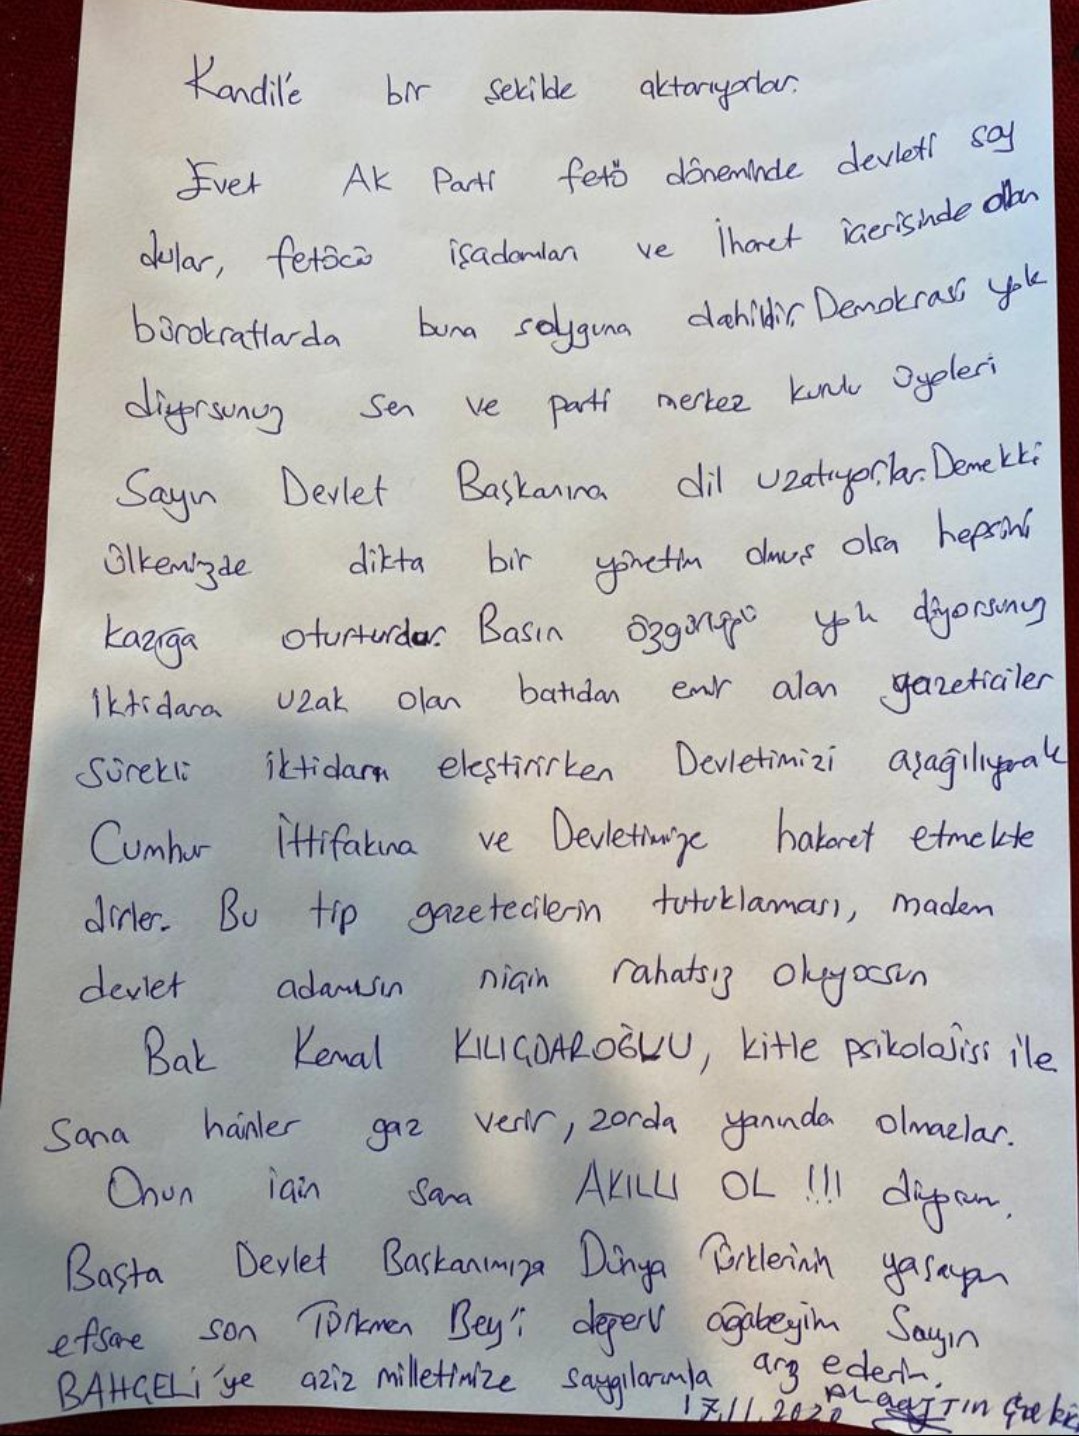 Kandil'e bir şekilde aktarıyorlar.
Evet Ak Parti fetö döneminde devleti soy
dular, fetöcü işadamları ve İhanet içerisinde olan
bürokratlarda buna soyguna dahildir. Demokrasi yok
diyorsunuz sen ve parti merkez kurulu üyeleri
Sayın Devlet Başkanına dil uzatıyorlar. Demekki
ülkemizde dikta bir yönetim olmuş olsa hepsini
kazığa oturturdu. Basın özgürlüğü yok diyorsunuz
iktidara uzak olan batıdan emir alan gazeticiler
sürekli iktidarı eleştirirken Devletimizi aşağılıyarak
Cumhur İttifakına ve Devletimize hakaret etmekte
dirler. Bu tip gazetecilerin tutuklaması, madem
devlet adamısın niçin rahatsız oluyorsun
Bak Kemal KILIÇDAROĞLU, kitle psikolojisi ile
sana hainler gaz verir, zorda yanında olmazlar.
Onun için sana AKILLI OL !!! diyorum.
Başta Devlet Başkanımıza Dünya Türklerinin yaşayan
efsane son Türkmen Bey'i değerli ağabeyim Sayın
BAHÇELİ'ye aziz milletimize saygılarımla arz ederim.
17.11.2020